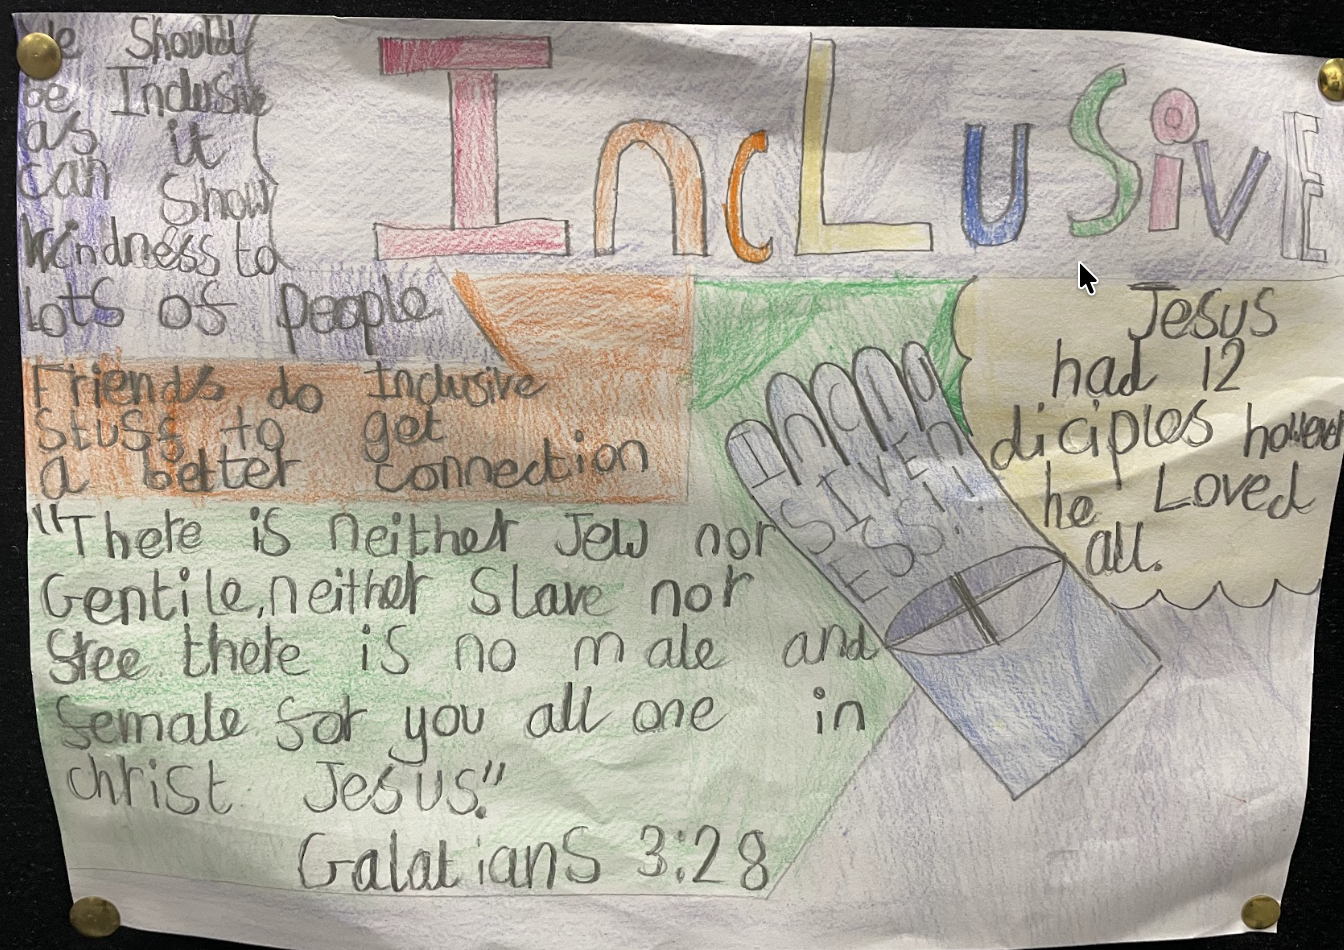 IncLuSivE
We Should
be Inclusive
as it
can Show
kindness to
lots of people
Friends do Inclusive
Stuff to get
a better connection
"There is neither Jew nor
Gentile, neither Slave nor
free there is no male and
female for you all one in
christ Jesus."
Galatians 3:28
INCLU
SIVEn
ESS!!
Jesus
had 12
diciples however
he Loved
all.